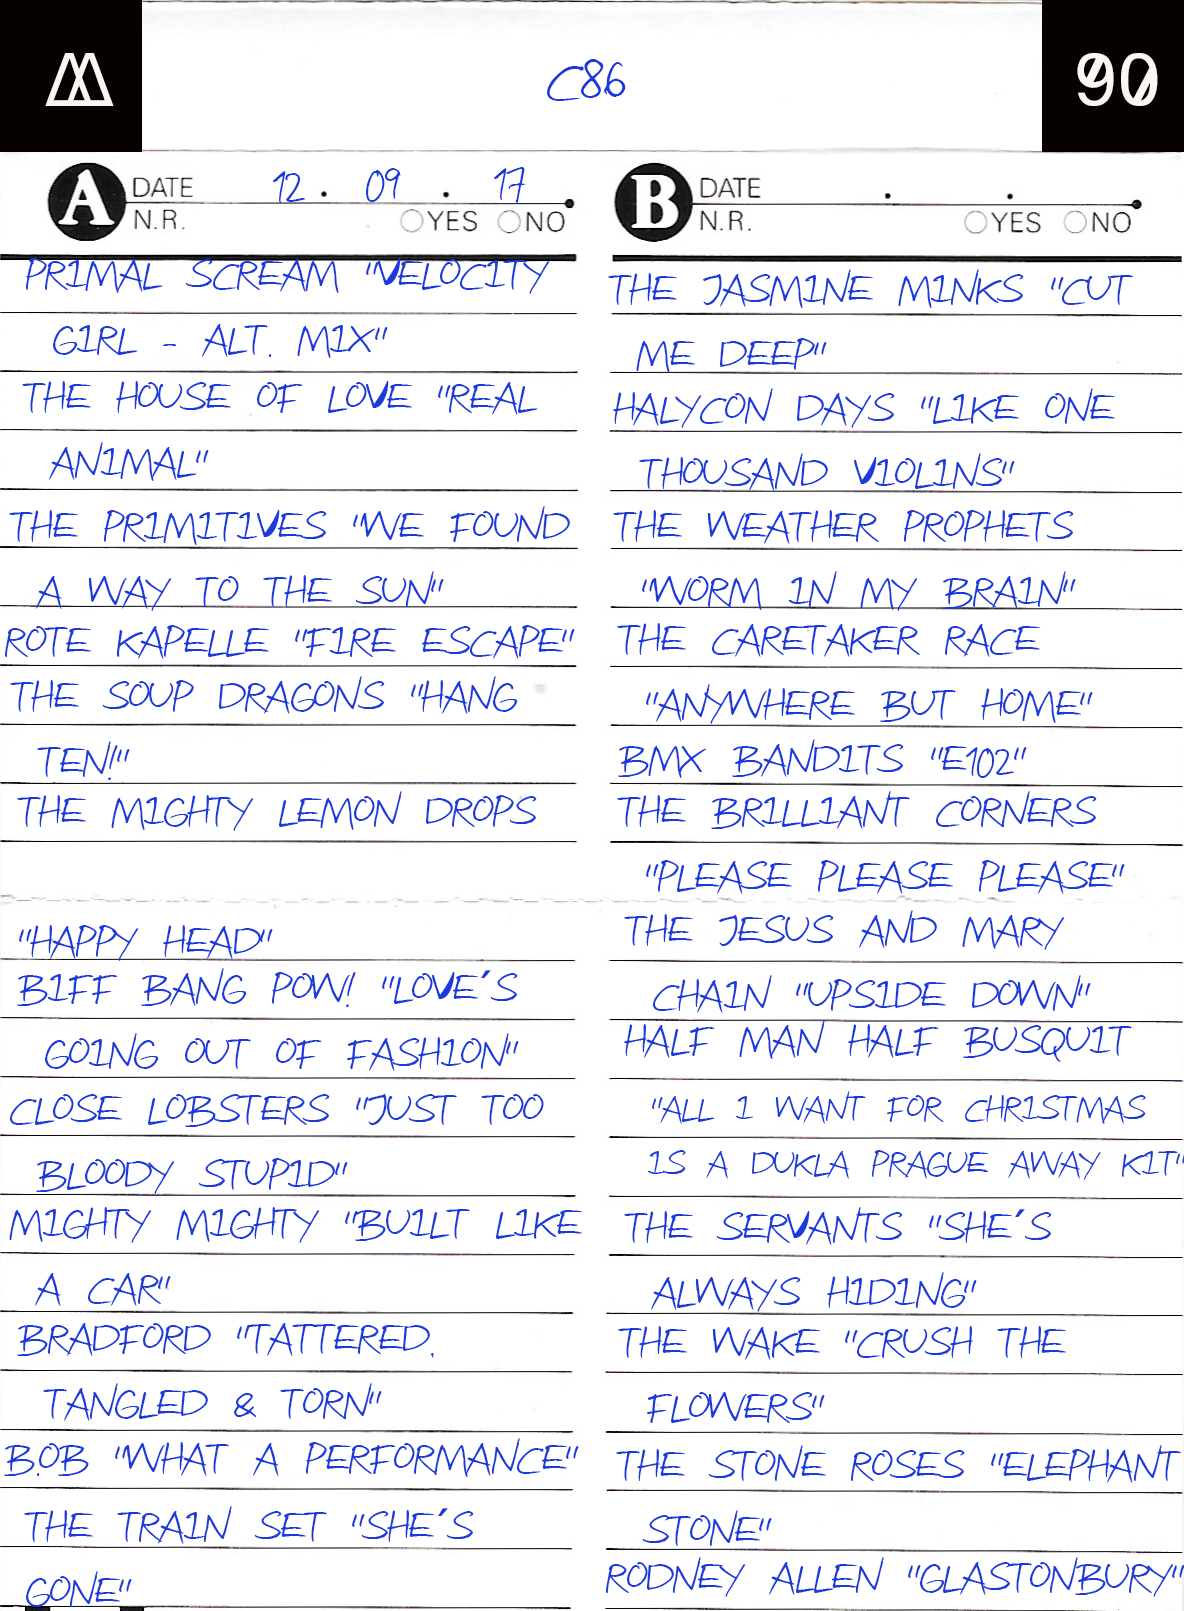 M
C86
90
A DATE 12 . 09 . 17
N.R. YES NO
PRIMAL SCREAM "VELOCITY
GIRL - ALT. MIX"
THE HOUSE OF LOVE "REAL
ANIMAL"
THE PRIMITIVES "WE FOUND
A WAY TO THE SUN"
ROTE KAPELLE "FIRE ESCAPE"
THE SOUP DRAGONS "HANG
TEN!"
THE MIGHTY LEMON DROPS
"HAPPY HEAD"
BIFF BANG POW! "LOVE'S
GOING OUT OF FASHION"
CLOSE LOBSTERS "JUST TOO
BLOODY STUPID"
MIGHTY MIGHTY "BUILT LIKE
A CAR"
BRADFORD "TATTERED,
TANGLED & TORN"
B.OB "WHAT A PERFORMANCE"
THE TRAIN SET "SHE'S
GONE"
B DATE . .
N.R. YES NO
THE JASMINE MINKS "CUT
ME DEEP"
HALYCON DAYS "LIKE ONE
THOUSAND VIOLINS"
THE WEATHER PROPHETS
"WORM IN MY BRAIN"
THE CARETAKER RACE
"ANYWHERE BUT HOME"
BMX BANDITS "E102"
THE BRILLIANT CORNERS
"PLEASE PLEASE PLEASE"
THE JESUS AND MARY
CHAIN "UPSIDE DOWN"
HALF MAN HALF BUSQUIT
"ALL I WANT FOR CHRISTMAS
IS A DUKLA PRAGUE AWAY KIT"
THE SERVANTS "SHE'S
ALWAYS HIDING"
THE WAKE "CRUSH THE
FLOWERS"
THE STONE ROSES "ELEPHANT
STONE"
RODNEY ALLEN "GLASTONBURY"